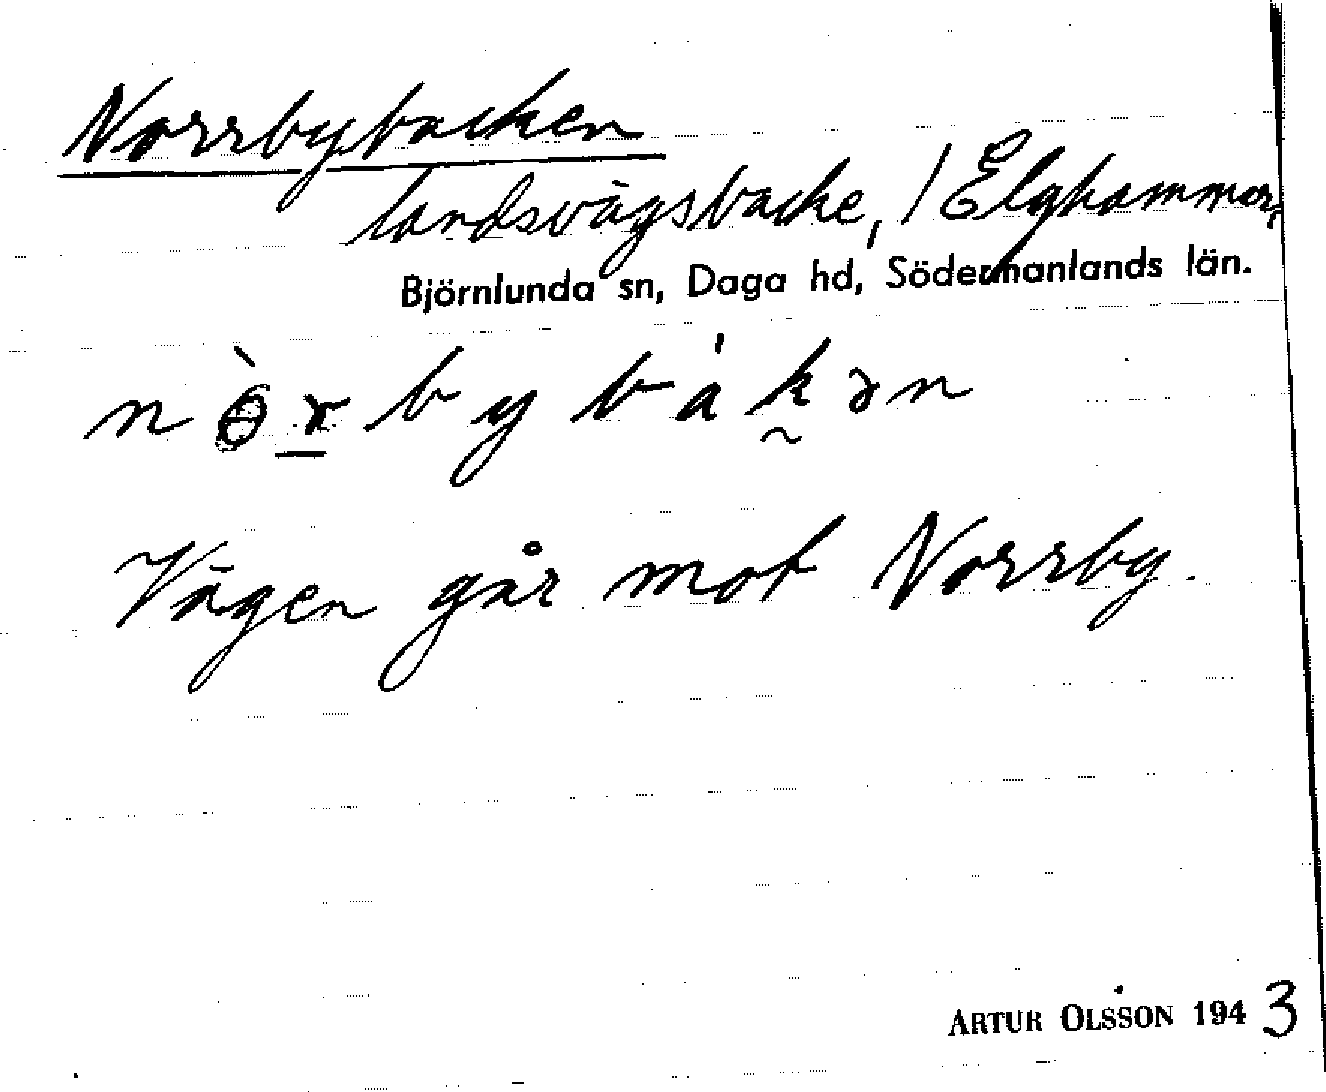 Norrbybacken
landsvägsbacke, / Elghammar,
Björnlunda sn, Daga hd, Södermanlands län.
Vägen går mot Norrby.
ARTUR OLSSON 1943